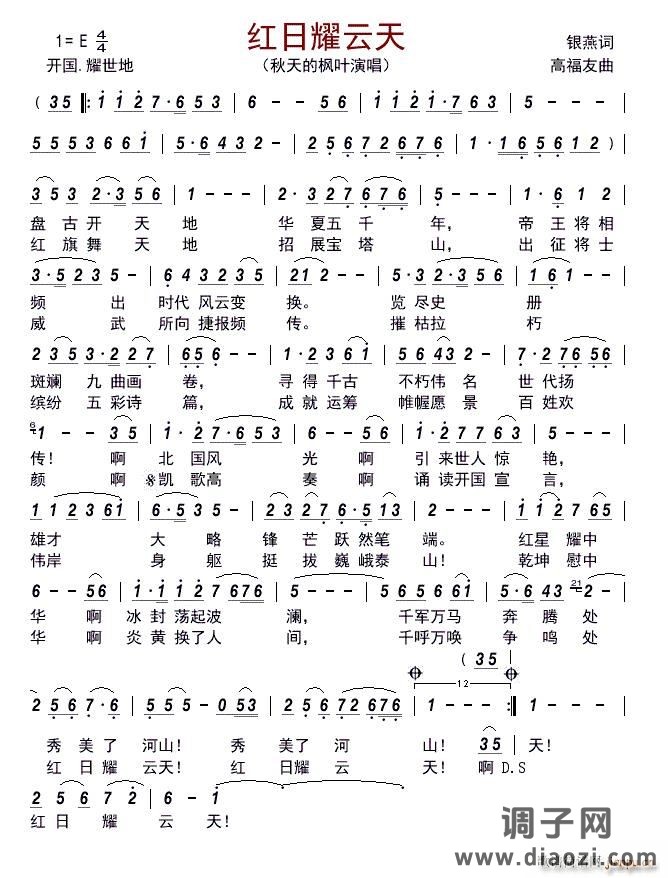 红日耀云天
1= E 4/4
银燕词
开国.耀世地
（秋天的枫叶演唱）
高福友曲
( 35 |: 1 1 2 7·6 5 3 | 6 - - 5 6 | 1 1 2 3 1·2 7 6 | 5 - - - |
5 5 5 3 6 6 1 | 5·6 4 3 2 - | 2 5 6 7 2 6 7 6 | 1 · 1 6 5 6 1 2 ) |
3 5 3 2·3 5 6 | 1 - - - | 2·3 2 7 6 7 6 | 5 - - - | 5·6 1 1 2 |
盘古开 天 地 华 夏五 千 年， 帝 王将相
红旗舞 天 地 招 展宝 塔 山， 出 征将士
3·5 2 3 - | 6 4 3 2 3 2 3 | 2 1 2 - - | 5·3 2·3 5 6 | 1 6 1 - - |
频 出 时代 风云变 换。 览 尽史 册
威 武 所向 捷报频 传。 摧 枯拉 朽
2 3 5 3·2 2 7 | 6 5 6 - - | 1·3 2 1 2 | 5 6 4 3 2 - | 7·2 7 6 5 6 |
斑斓 九 曲画 卷， 寻 得千古 不朽伟 名 世 代扬
缤纷 五 彩诗 篇， 成 就运筹 帷幄愿 景 百 姓欢
6 1 - - 3 5 | 1·2 7·6 5 3 | 6 - - 5 6 | 1 1 2 7 6 6 3 | 5 - - - |
传！ 啊 北 国风 光 啊 引 来世人 惊 艳，
颜 啊 凯 歌高 奏 啊 诵 读开国 宣 言，
1 1 2 3 6 1 | 5 - 4 5 2 | 3·2 3 5 6 7 6 | 2 - - - | 6 1 2 3 6 5 |
雄才 大 略 锋 芒 跃 然笔 端。 红星 耀中
伟岸 身 躯 挺 拔 巍 峨泰 山！ 乾坤 慰中
6 - - 5 6 | 1·1 1 2 1 7 6 7 6 | 5 - - - | 3 3 5 6 1 | 4 3 2 3 21 2 |
华 啊 冰 封 荡起波 澜， 千军万马 奔 腾 处
华 啊 炎 黄 换了人 间， 千呼万唤 争 鸣 处
( 35
12
2 5 6 7·6 | 5 5 - 0 5 3 | 2 5 6 7 2 6 7 6 | 1 - - - :| 1 - - - |
秀 美了 河山！ 秀 美了 河 山！ 35 | 天！
红 日耀 云天！ 红 日耀 云 天！ 啊 D.S
2 5 6 7 2 | 6 - 1 - | 1 - - - |
红 日 耀 云 天！
调子网
www.diaozi.com